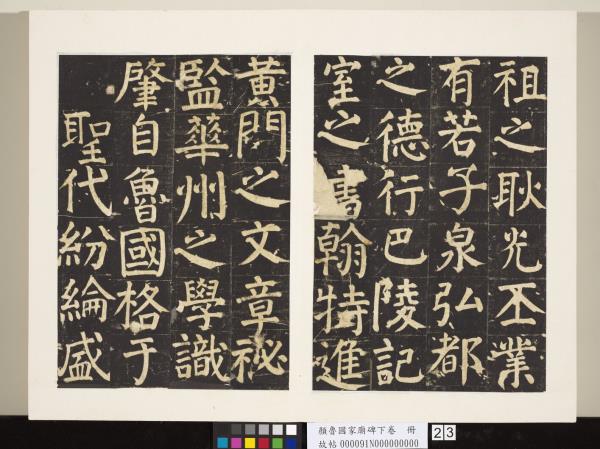 祖之耿光丕業
有若子泉弘都
之德行巴陵記
室之書翰特進
黃門之文章祕
監華州之學識
肇自魯國格于
聖代紛綸盛
顏魯國家廟碑下卷 冊
故帖000091N000000000
23